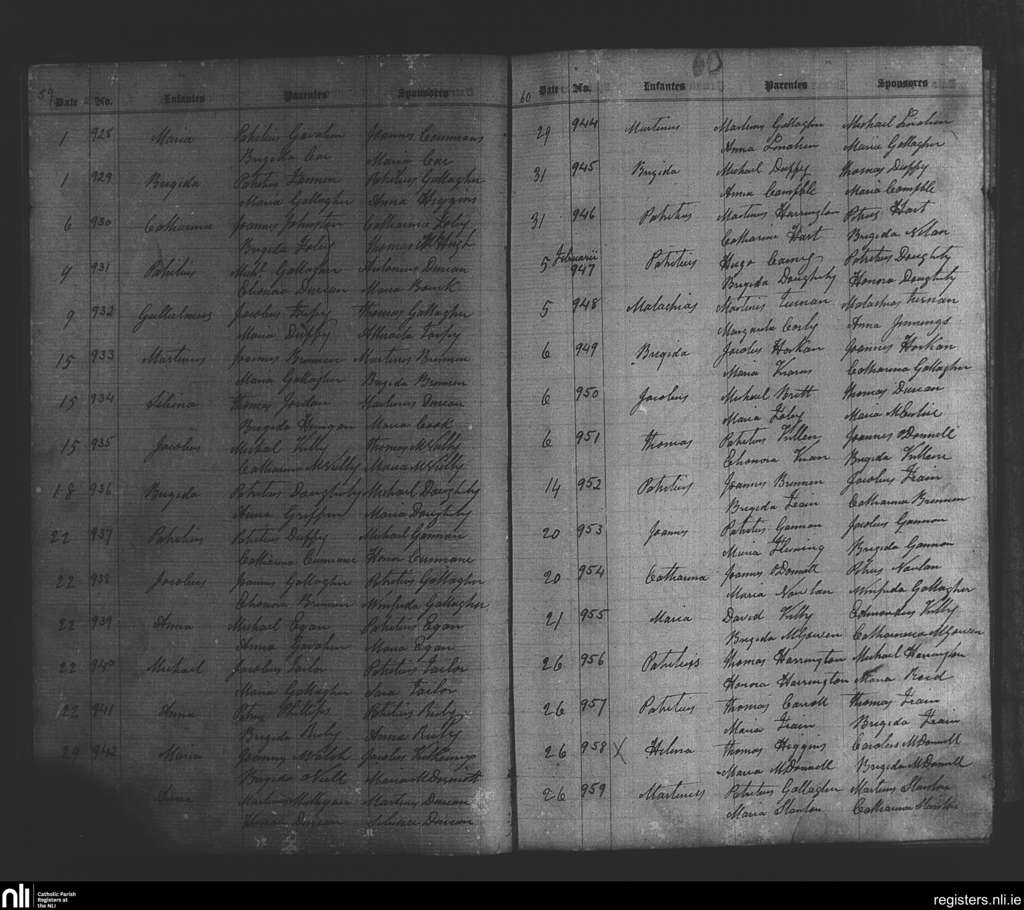 59
Date No. Infantes Parentes Sponsores
1 928 Maria Patritius Gavahin Joannes Cummans
Brigida Car Maria Car
1 929 Brigida Patritius Patritius Gallagher
Maria Gallagher Anna Higgins
6 930 Catharina Joannes Johnston Catharina Foley
Brigida Foley Thomas McHugh
9 931 Patritius Michl Gallagher Antonius Duncan
Elhonora Duncan Maria
9 932 Gulielmus Jacobus Thomas Gallagher
Maria Duffy
15 933 Martinus Joannes Brennen Martinus Brennen
Maria Gallagher Brigida Brennen
15 934 Helena Thomas Jordan Martinus Duncan
Brigida Maria Cook
15 935 Jacobus Michal Thomas
Catharina Maria
18 936 Brigida Patritius Daughity Michael Daughity
Anna Griffin Maria Doughity
22 937 Patritius Patritius Duffy Michael Gannan
Catharina Cunnane Honor Cunnane
22 938 Jacobus Joannes Gallagher Patritius Gallagher
Elhonora Brennan Winifrida Gallagher
22 939 Anna Michael Egan Patritius Egan
Anna Gavahin Maria Egan
22 940 Michael Jacobus Tailor Patritius Tailor
Maria Gallagher Sara Tailor
22 941 Anna Petrus Phillips Patritius Ruby
Brigida Ruby Anna Ruby
942 Maria Joannes Walsh Jacobus
Brigida Maria McDermott
Martinus Milligan Martinus Duncan
Duncan Duncan
60
60 Date No. Infantes Parentes Sponsores
29 944 Martinus Martinus Gallagher Michael Linahen
Anna Linahen Maria Gallagher
31 945 Brigida Michael Duffy Thomas Duffy
Anna Campble Maria Campble
31 946 Patritius Martinus Harrington Petrus Hart
Catharine Hart Brigida Nelan
Februarii
5 947 Patritius Hugo Patritius Doughity
Brigida Doughity Honora Doughity
5 948 Malachias Martinus Turnan Malachias Turnan
Margarita Corly Anna Jennings
6 949 Bregida Jacobus Horkan Joannes Horkan
Maria Kearns Catharina Gallagher
6 950 Jacobus Michael Britt Thomas Duncan
Maria Foley Maria
6 951 Thomas Patritius Killen Joannes O'Donnell
Elhonora Kean Brigida Killeen
14 952 Patritius Joannes Brennen Jacobus Frain
Brigida Frain Catharina Brennen
20 953 Joannes Patritius Gannon Jacobus Gannon
Maria Fleming Brigida Gannon
20 954 Catharina Joannes O'Donnell Petrus Nowlan
Maria Nowlan Winifrida Gallagher
21 955 Maria David Kilby Edmondus Kilby
Brigida McGowen Catharina McGowen
26 956 Patritius Thomas Harrington Michael Harrington
Honora Harrington Maria Reid
26 957 Patritius Thomas Carroll Thomas Frain
Maria Frain Brigida Frain
26 958 X Helena Thomas Higgins Carolus McDonnell
Maria McDonnell Brigida McDonnell
26 959 Martinus Patritius Gallagher Martinus Stanton
Maria Stanton Catharina Stanton
nli Catholic Parish
Registers at
the NLI
registers.nli.ie